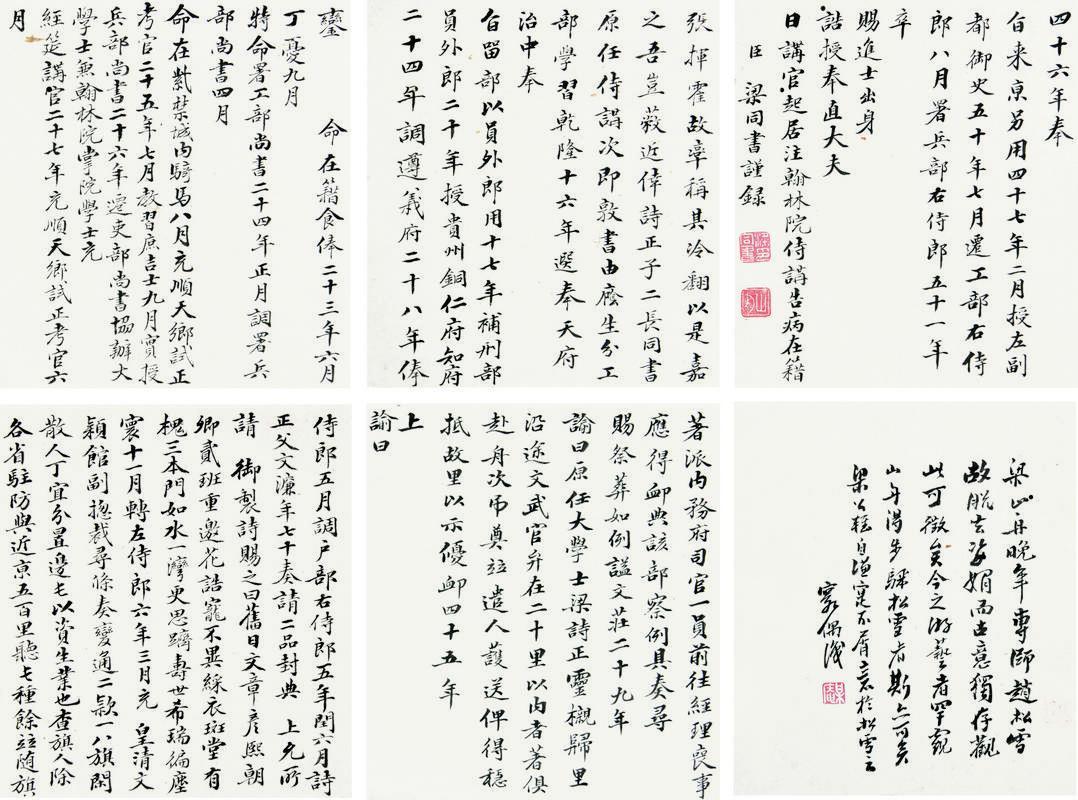 四十六年奉
旨来京另用四十七年二月授左副
都御史五十年七月遷工部右侍
郎八月署兵部右侍郎五十一年
卒
賜進士出身
誥授奉直大夫
日講官起居注翰林院侍講告病在籍
臣 梁同書謹録
張揮霍故章稱其冷翻以是嘉
之吾豈薮近侍詩正子二長同書
原任侍講次即敦書由廕生分工
部學習乾隆十六年選奉天府
治中奉
旨留部以員外郎用十七年補刑部
員外郎二十年授貴州銅仁府知府
二十四年調遵義府二十八年俸
鑾 命在籍食俸二十三年六月
丁憂九月
特命署工部尚書二十四年正月調署兵
部尚書四月
命在紫禁城内騎馬八月充順天鄉試正
考官二十五年七月教習庶吉士九月實授
兵部尚書二十六年遷吏部尚書協辦大
學士兼翰林院掌院學士充
經筵講官二十七年充順天鄉試正考官六
月
梁山舟晚年專師趙松雪
故脱去姿媚而古意獨存觀
此可徵矣今之游藝者罕窺
山舟 步驟松雪者斯亦可矣
梁公 自謙寔不屑意於松雪云
偶識
著派内務府司官一員前往經理喪事
應得卹典該部察例具奏尋
賜祭葬如例謚文莊二十九年
諭曰原任大學士梁詩正靈櫬歸里
沿途文武官弁在二十里以内者著俱
赴舟次弔奠並遣人護送俾得穩
抵故里以示優卹四十五年
上
諭曰
侍郎五月調户部右侍郎五年閏六月詩
正父文濂年七十奏請二品封典 上允所
請 御製詩賜之曰舊日文章彦熙朝
卿貳班重邀花誥寵不異綵衣斑堂有
槐三本門如水一灣更思躋壽世希瑞徧塵
寰十一月轉左侍郎六年三月充 皇清文
穎館副揔裁尋條奏變通二款一八旗閑
散人丁宜分置邊屯以資生業也查旗人除
各省駐防與近京五百里聽其種餘並随旗